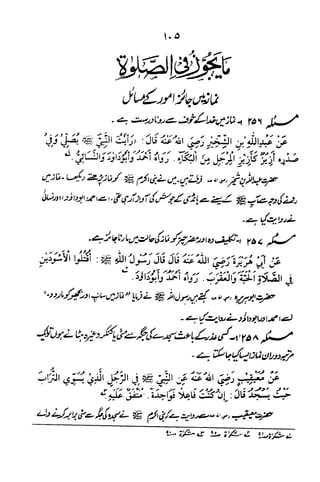 ۱۰۵
مَا يَجُوزُ فِي الصَّلٰوةِ
نماز میں جائز امور کے مسائل
مسئلہ ۲۵۶ - نماز میں خدا کے خوف سے رونا درست ہے۔
عَنْ عَبْدِ اللّٰهِ بْنِ الشِّخِّيْرِ رَضِيَ اللّٰهُ عَنْهُ قَالَ: رَأَيْتُ النَّبِيَّ ﷺ يُصَلِّي وَفِي
صَدْرِهِ أَزِيْزٌ كَأَزِيْزِ الْمِرْجَلِ مِنَ الْبُكَاءِ. رَوَاهُ أَحْمَدُ وَأَبُوْدَاوُدَ وَالنَّسَائِيُّ.
حضرت عبداللہ بن شخیر فرماتے ہیں۔ میں نے نبی اکرم ﷺ کو نماز پڑھتے دیکھا۔ نماز میں
رونے کی وجہ سے آپ ﷺ کے سینے سے ہانڈی کے جوش کی آواز آرہی تھی۔ اسے احمد ابوداؤد اور نسائی
نے روایت کیا ہے۔
مسئلہ ۲۵۷ - تکلیف دہ اور مضر چیز کو نماز کی حالت میں مارنا جائز ہے۔
عَنْ أَبِيْ هُرَيْرَةَ رَضِيَ اللّٰهُ عَنْهُ قَالَ رَسُوْلُ اللّٰهِ ﷺ: أُقْتُلُوا الْأَسْوَدَيْنِ
فِي الصَّلَاةِ الْحَيَّةَ وَالْعَقْرَبَ. رَوَاهُ أَحْمَدُ وَأَبُوْدَاوُدَ.
حضرت ابوہریرہ کہتے ہیں رسول اللہ ﷺ نے فرمایا "نماز میں سانپ اور بچھو کو مار دو۔"
اسے احمد اور ابوداؤد نے روایت کیا ہے۔
مسئلہ ۲۵۸ - کسی عذر کے باعث سجدے کی جگہ سے مٹی یا کنکر وغیرہ ہٹانے ہوں تو ایک
مرتبہ دوران نماز ایسا کیا جا سکتا ہے۔
عَنْ مُعَيْقِيْبٍ رَضِيَ اللّٰهُ عَنْهُ عَنِ النَّبِيِّ ﷺ فِي الرَّجُلِ الَّذِيْ يُسَوِّي التُّرَابَ
حَيْثُ يَسْجُدُ قَالَ: إِنْ كُنْتَ فَاعِلًا فَوَاحِدَةً. مُتَّفَقٌ عَلَيْهِ
حضرت معیقیب سے روایت ہے کہ نبی اکرم ﷺ نے سجدہ کی جگہ سے مٹی برابر کرنے والے